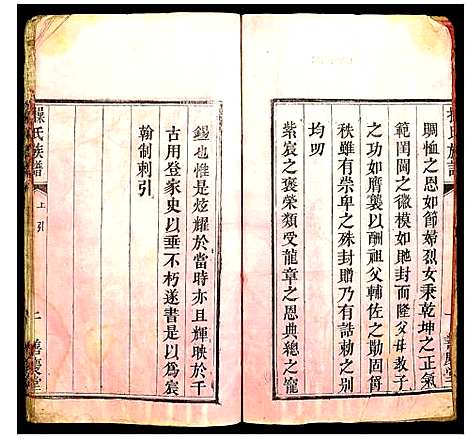 賙恤之恩如節婦烈女秉乾坤之正氣
範閨閫之徽模如貤封而隆父母教子
之功如膺襲以酬祖父輔佐之勛固爵
秩雖有崇卑之殊封贈乃有誥勅之別
均叨
紫宸之褒榮類受龍章之恩典總之寵
錫也惟是炫耀於當時亦且輝映於千
古用登家史以垂不朽遂書是以為宸
翰制刺引
氏族譜
上 引
二 善慶堂